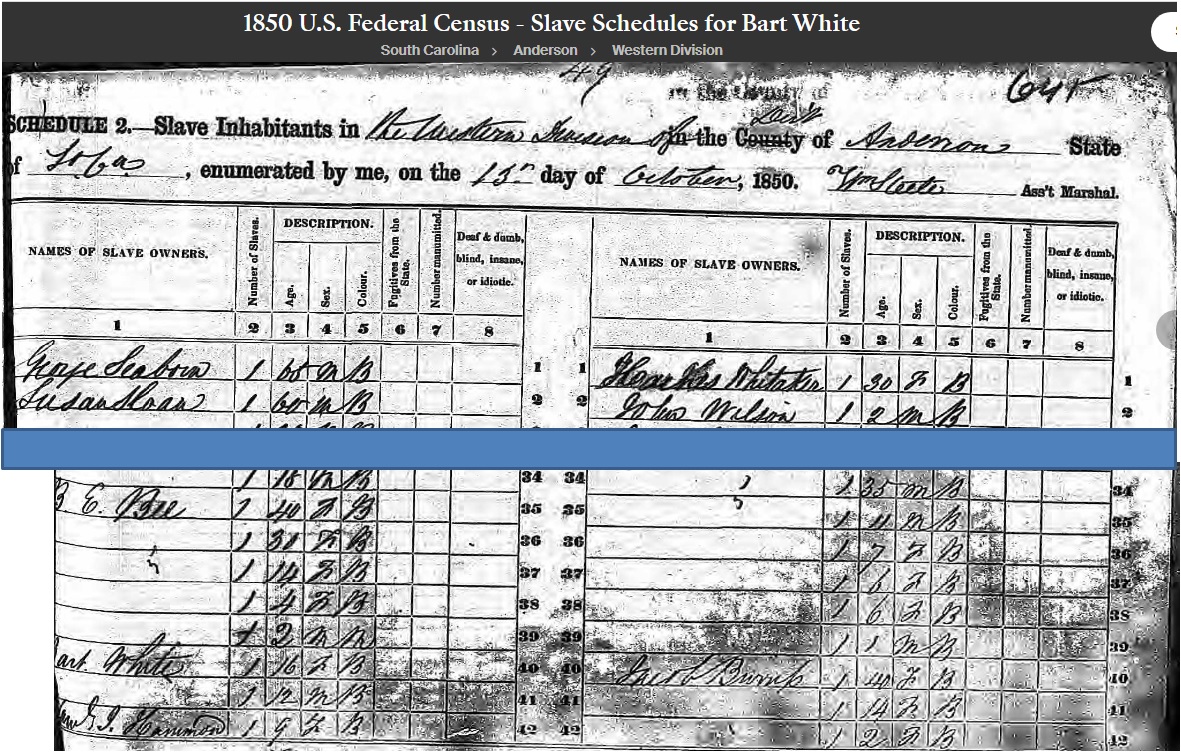 1850 U.S. Federal Census - Slave Schedules for Bart White
South Carolina > Anderson > Western Division
49
in the County of
SCHEDULE 2.—Slave Inhabitants in the Western Division of in the County Dist of Anderson State
of So Ca, enumerated by me, on the 15th day of October, 1850. Ass't Marshal.
NAMES OF SLAVE OWNERS. Number of Slaves. DESCRIPTION. Age. Sex. Colour. Fugitives from the State. Number manumitted. Deaf & dumb, blind, insane, or idiotic. NAMES OF SLAVE OWNERS. Number of Slaves. DESCRIPTION. Age. Sex. Colour. Fugitives from the State. Number manumitted. Deaf & dumb, blind, insane, or idiotic.
1 2 3 4 5 6 7 8 1 2 3 4 5 6 7 8
George Seaborn 1 M B 1 1 Whitaker 1 30 F B 1
Susan Sloan 1 60 M B 2 2 John Wilson 1 2 M B 2
1 18 M B 34 34 1 35 M B 34
B E. Bee 1 40 F B 35 35 1 M B 35
1 31 F B 36 36 1 7 F B 36
1 14 F B 37 37 1 6 F B 37
1 4 F B 38 38 1 6 F B 38
1 2 M 39 39 1 1 M B 39
art White 1 16 F B 40 40 1 40 F B 40
1 12 M B 41 41 1 14 F B 41
Hammond 1 9 F B 42 42 1 2 F B 42